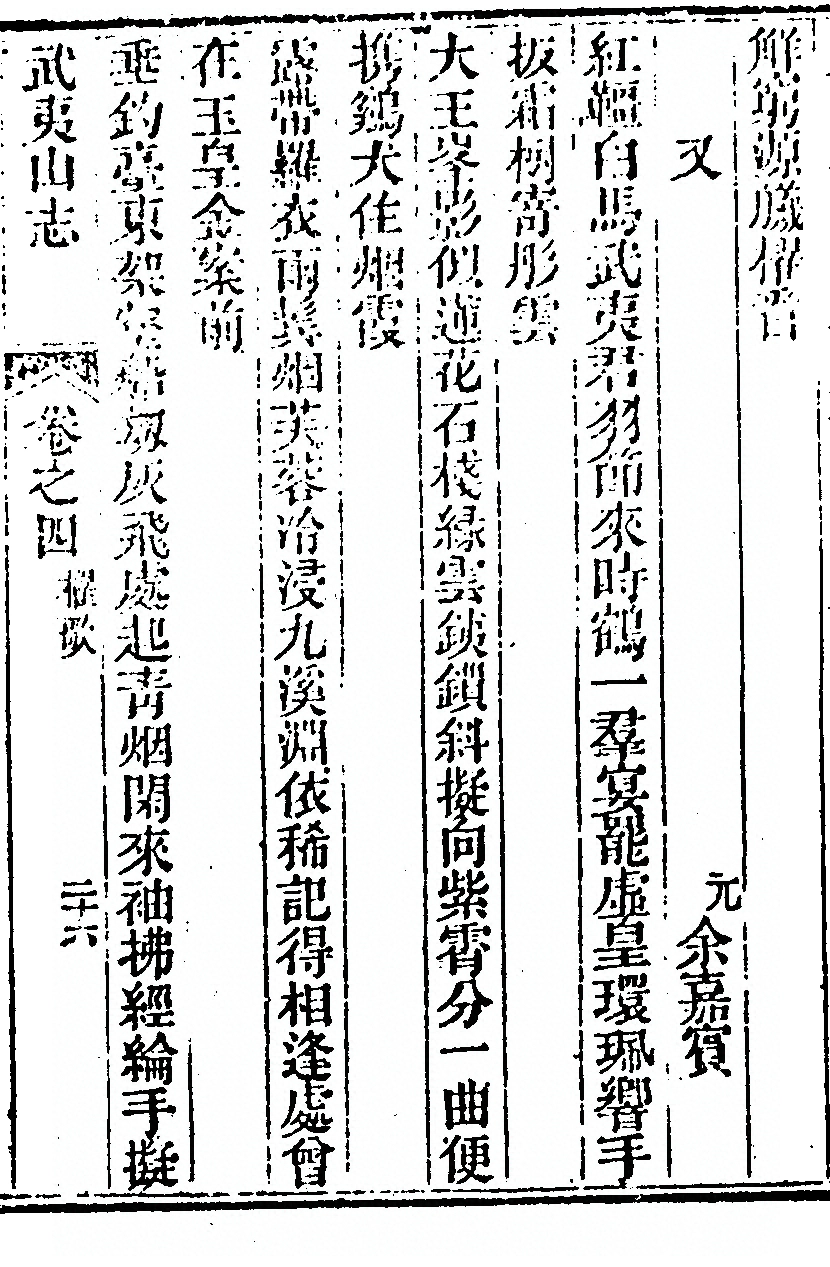 解窮源騰櫂音
又
元 余嘉賓
紅韁白馬武夷君羽節來時鶴一羣宴罷虛皇環珮響手
扳霜樹寄彤雲
大王峯影似蓮花石棧緣雲鉄鎖斜擬向紫霄分一曲便
携鷄犬住烟霞
露帶羅衣雨鬂烟芙蓉冷浸九溪淵依稀記得相逢處曾
在玉皇金案前
垂釣臺東架壑船刼灰飛處起青烟閑來袖拂經綸手擬
武夷山志
卷之四
櫂歌
二十六